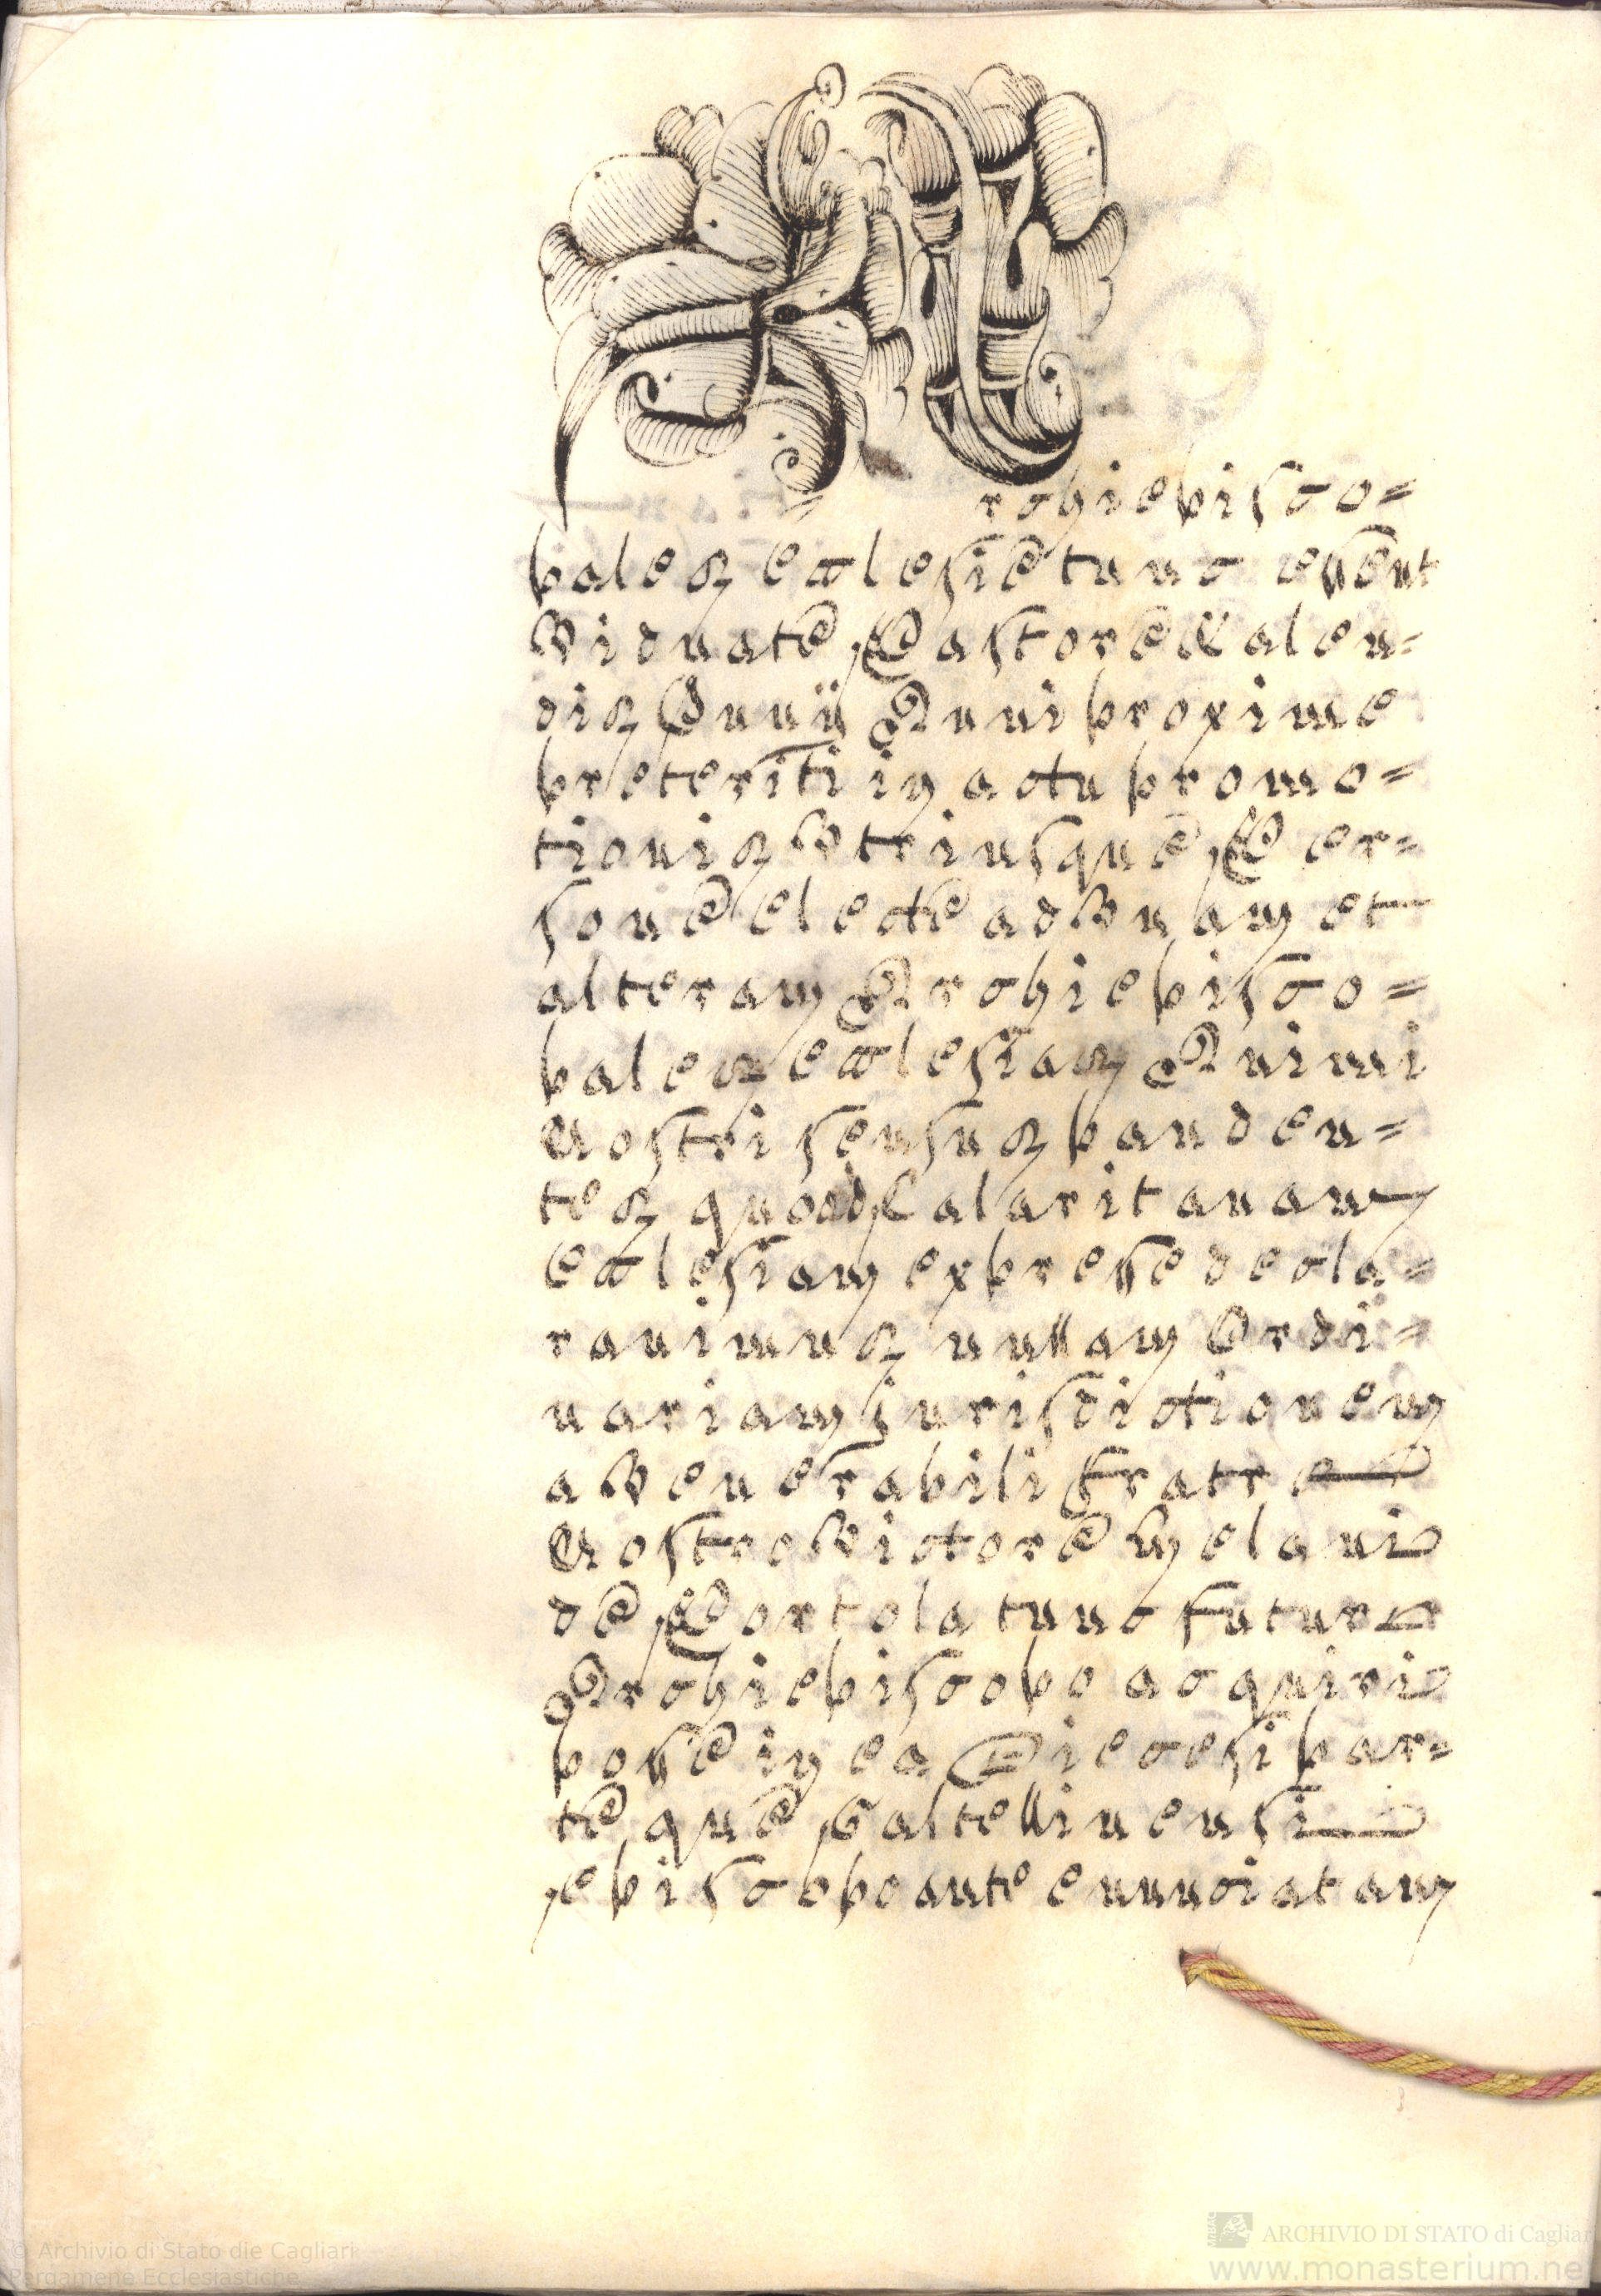 Archiepisco=
pales Ecclesie tunc essent
Viduate, Pastore Kalen=
dis Junij Anni proxime
preteriti in actu promo=
tionis Vtriusque, Per=
sone electe ad Vnam et
alteram Archiepisco=
pales ecclesiam Animi
Nostri sensus panden=
tes quod Calaritanam
Ecclesiam expresse decla=
rauimus nullam Ordi=
nariam Jurisdictionem
a Venerabili Fratre
Nostro Victore Melani
de Portola tunc Futuro
Archiepiscopo acquiri
posse in ea Diecesi par=
te que Galtellinensi
episcopo ante enunciatam
© Archivio di Stato die Cagliari
Pergamene Ecclesiastiche
ARCHIVIO DI STATO di Cagliari
www.monasterium.ne